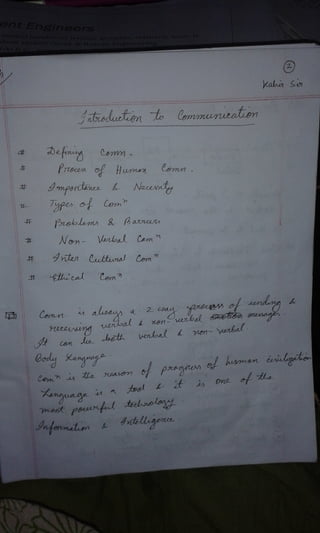 ent Engineers
2
Kabir Sir
Introduction to Communication
# Defining Comn.
# Process of Human Comn.
# Importance & Necessity
# Types of Comⁿ
# Problems & Barriers
# Non-Verbal Comⁿ
# Inter Cultural Comⁿ
# Ethical Comⁿ
Comn is always a 2 way process of sending &
receiving verbal & non-verbal message.
It can be both verbal & non-verbal
Body Language
Comⁿ is the reason of progress of human civilization
Language is a tool & it is one of the
most powerful technology
Information & Intelligence